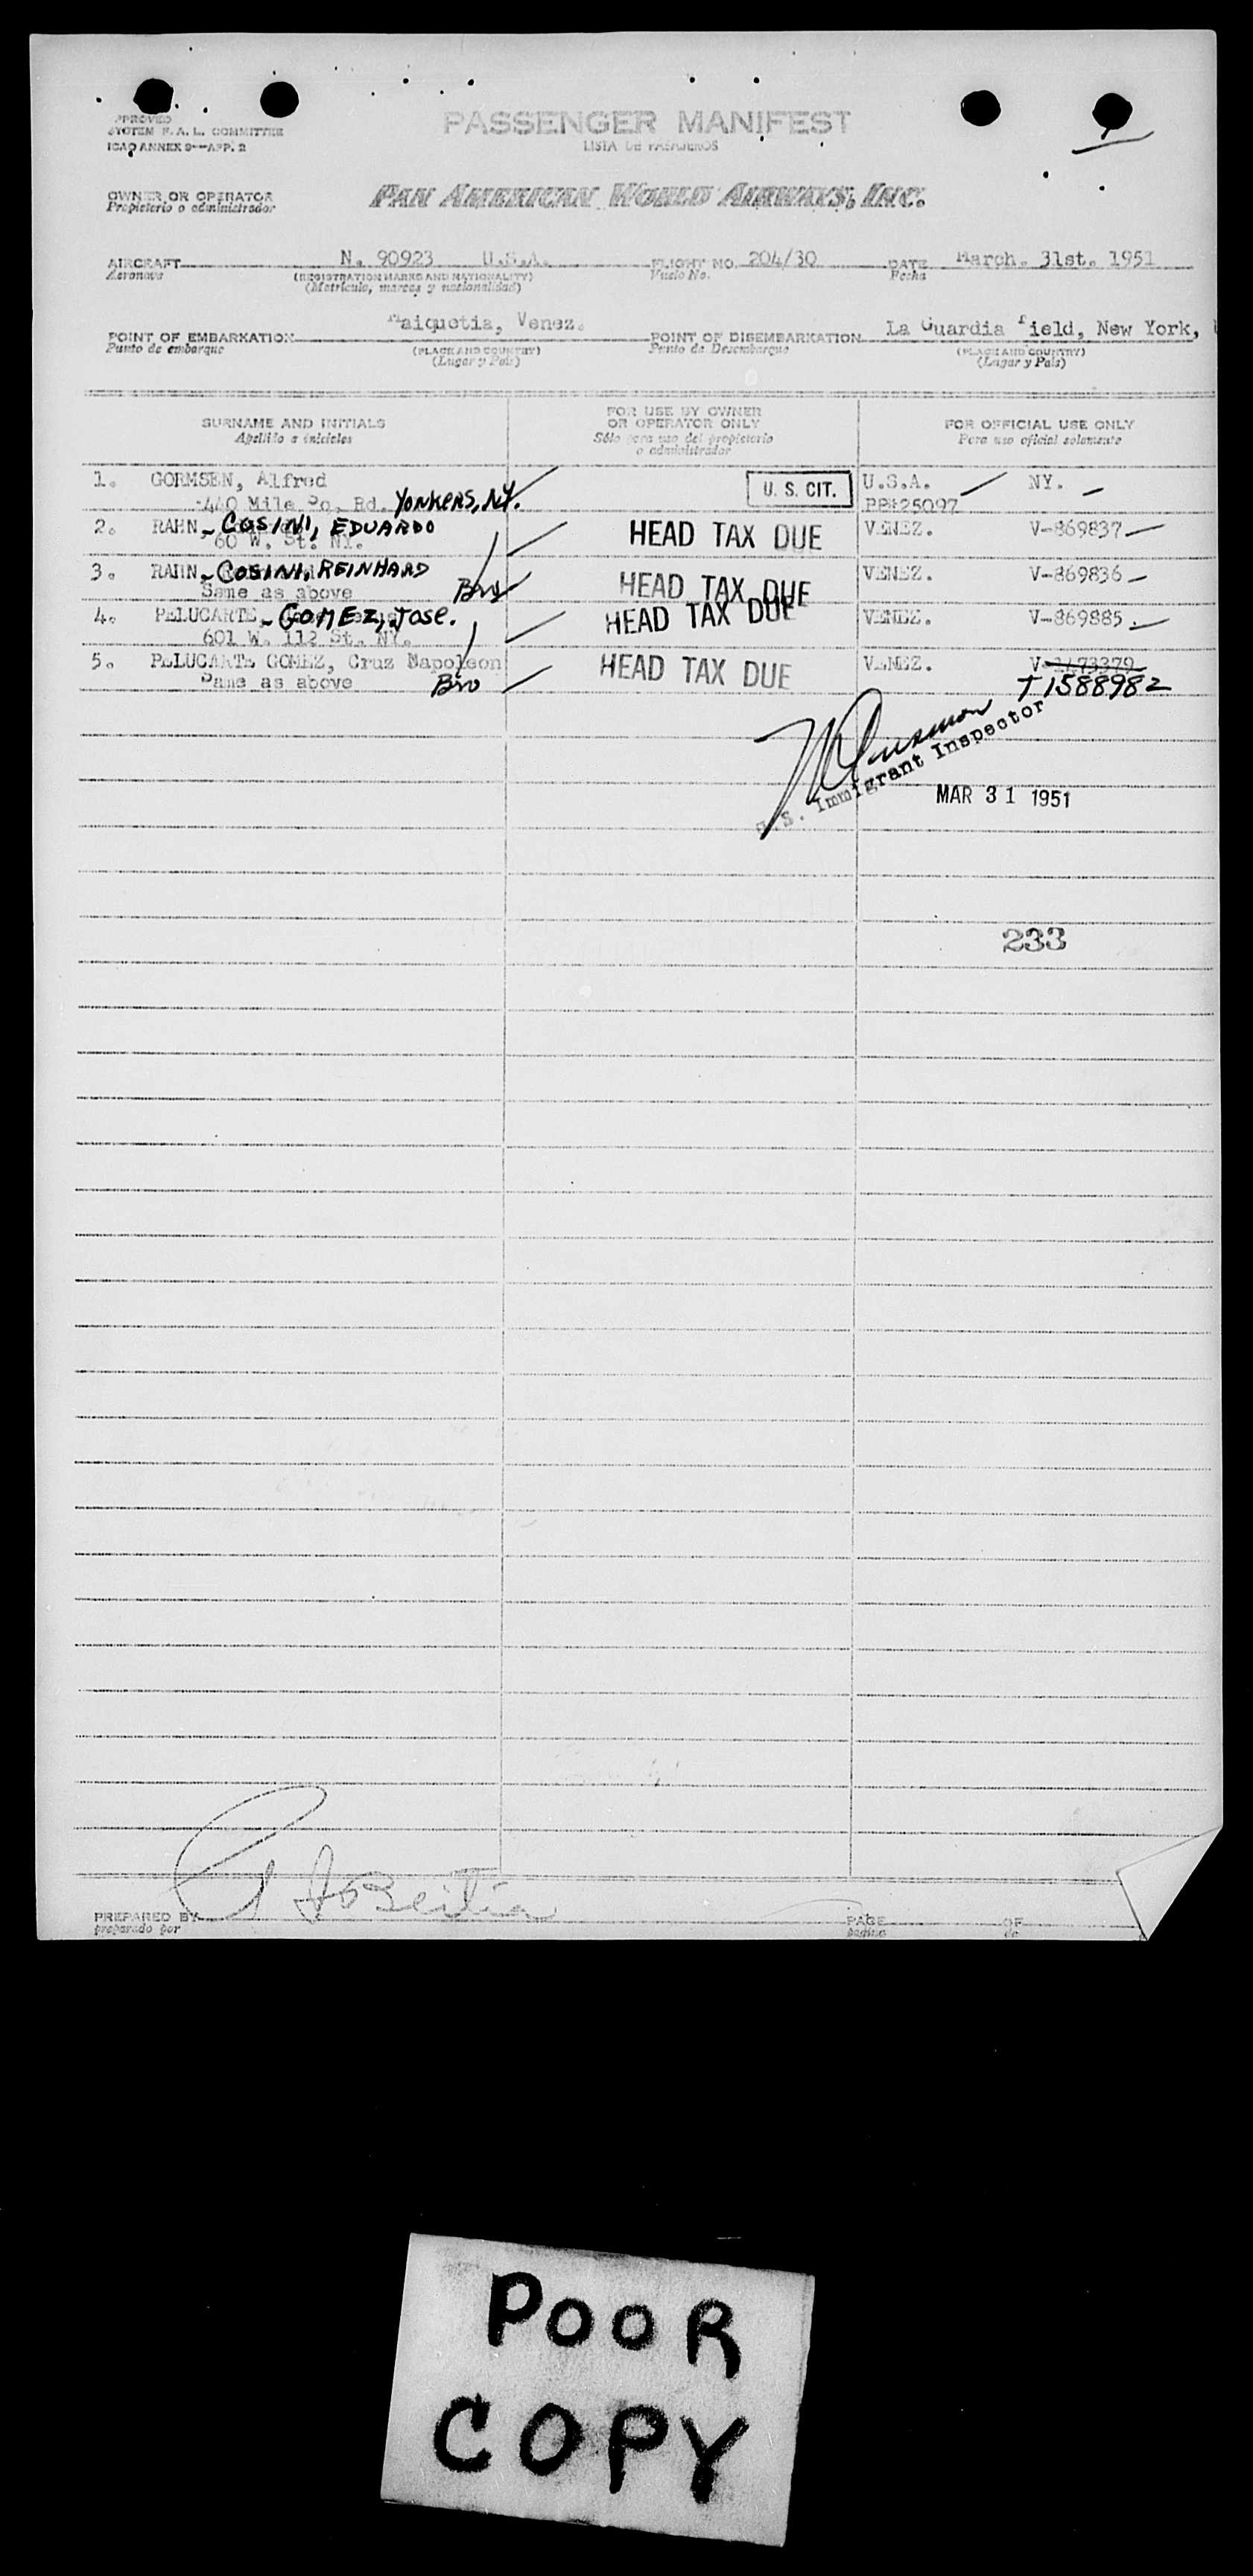 APPROVED
SYSTEM F. A. L. COMMITTEE
ICAO ANNEX 9—APP. 2
PASSENGER MANIFEST
LISTA DE PASAJEROS
OWNER OR OPERATOR
Propietario o administrador
PAN AMERICAN WORLD AIRWAYS, INC.
AIRCRAFT N. 90923 U.S.A. FLIGHT NO. 204/30 DATE March. 31st. 1951
Aeronave (REGISTRATION MARKS AND NATIONALITY) Vuelo No. Fecha
(Matricula, marcas y nacionalidad)
POINT OF EMBARKATION Maiquetia, Venez. POINT OF DISEMBARKATION La Guardia Field, New York,
Punto de embarque (PLACE AND COUNTRY) Punto de Desembarque (PLACE AND COUNTRY)
(Lugar y País) (Lugar y País)
SURNAME AND INITIALS
Apellido e iniciales
FOR USE BY OWNER
OR OPERATOR ONLY
Sólo para uso del propietario
o administrador
FOR OFFICIAL USE ONLY
Para uso oficial solamente
1. GORMSEN, Alfred U. S. CIT. U.S.A. NY.
440 Mile Sq. Rd. YONKERS, N.Y. PP#25097
2. RAHN - COSINI, EDUARDO HEAD TAX DUE VENEZ. V-869837
60 W. St. NY.
3. RAHN - COSINI, REINHARD HEAD TAX DUE VENEZ. V-869836
Same as above Bro
4. PELUCARTE - GOMEZ, Jose. HEAD TAX DUE VENEZ. V-869885
601 W. 112 St. NY.
5. PELUCARTE GOMEZ, Cruz Napoleon HEAD TAX DUE VENEZ. V-1473379
Same as above Bro T1588982
U.S. Immigrant Inspector
MAR 31 1951
233
PREPARED BY PAGE OF
preparado por página de
POOR
COPY